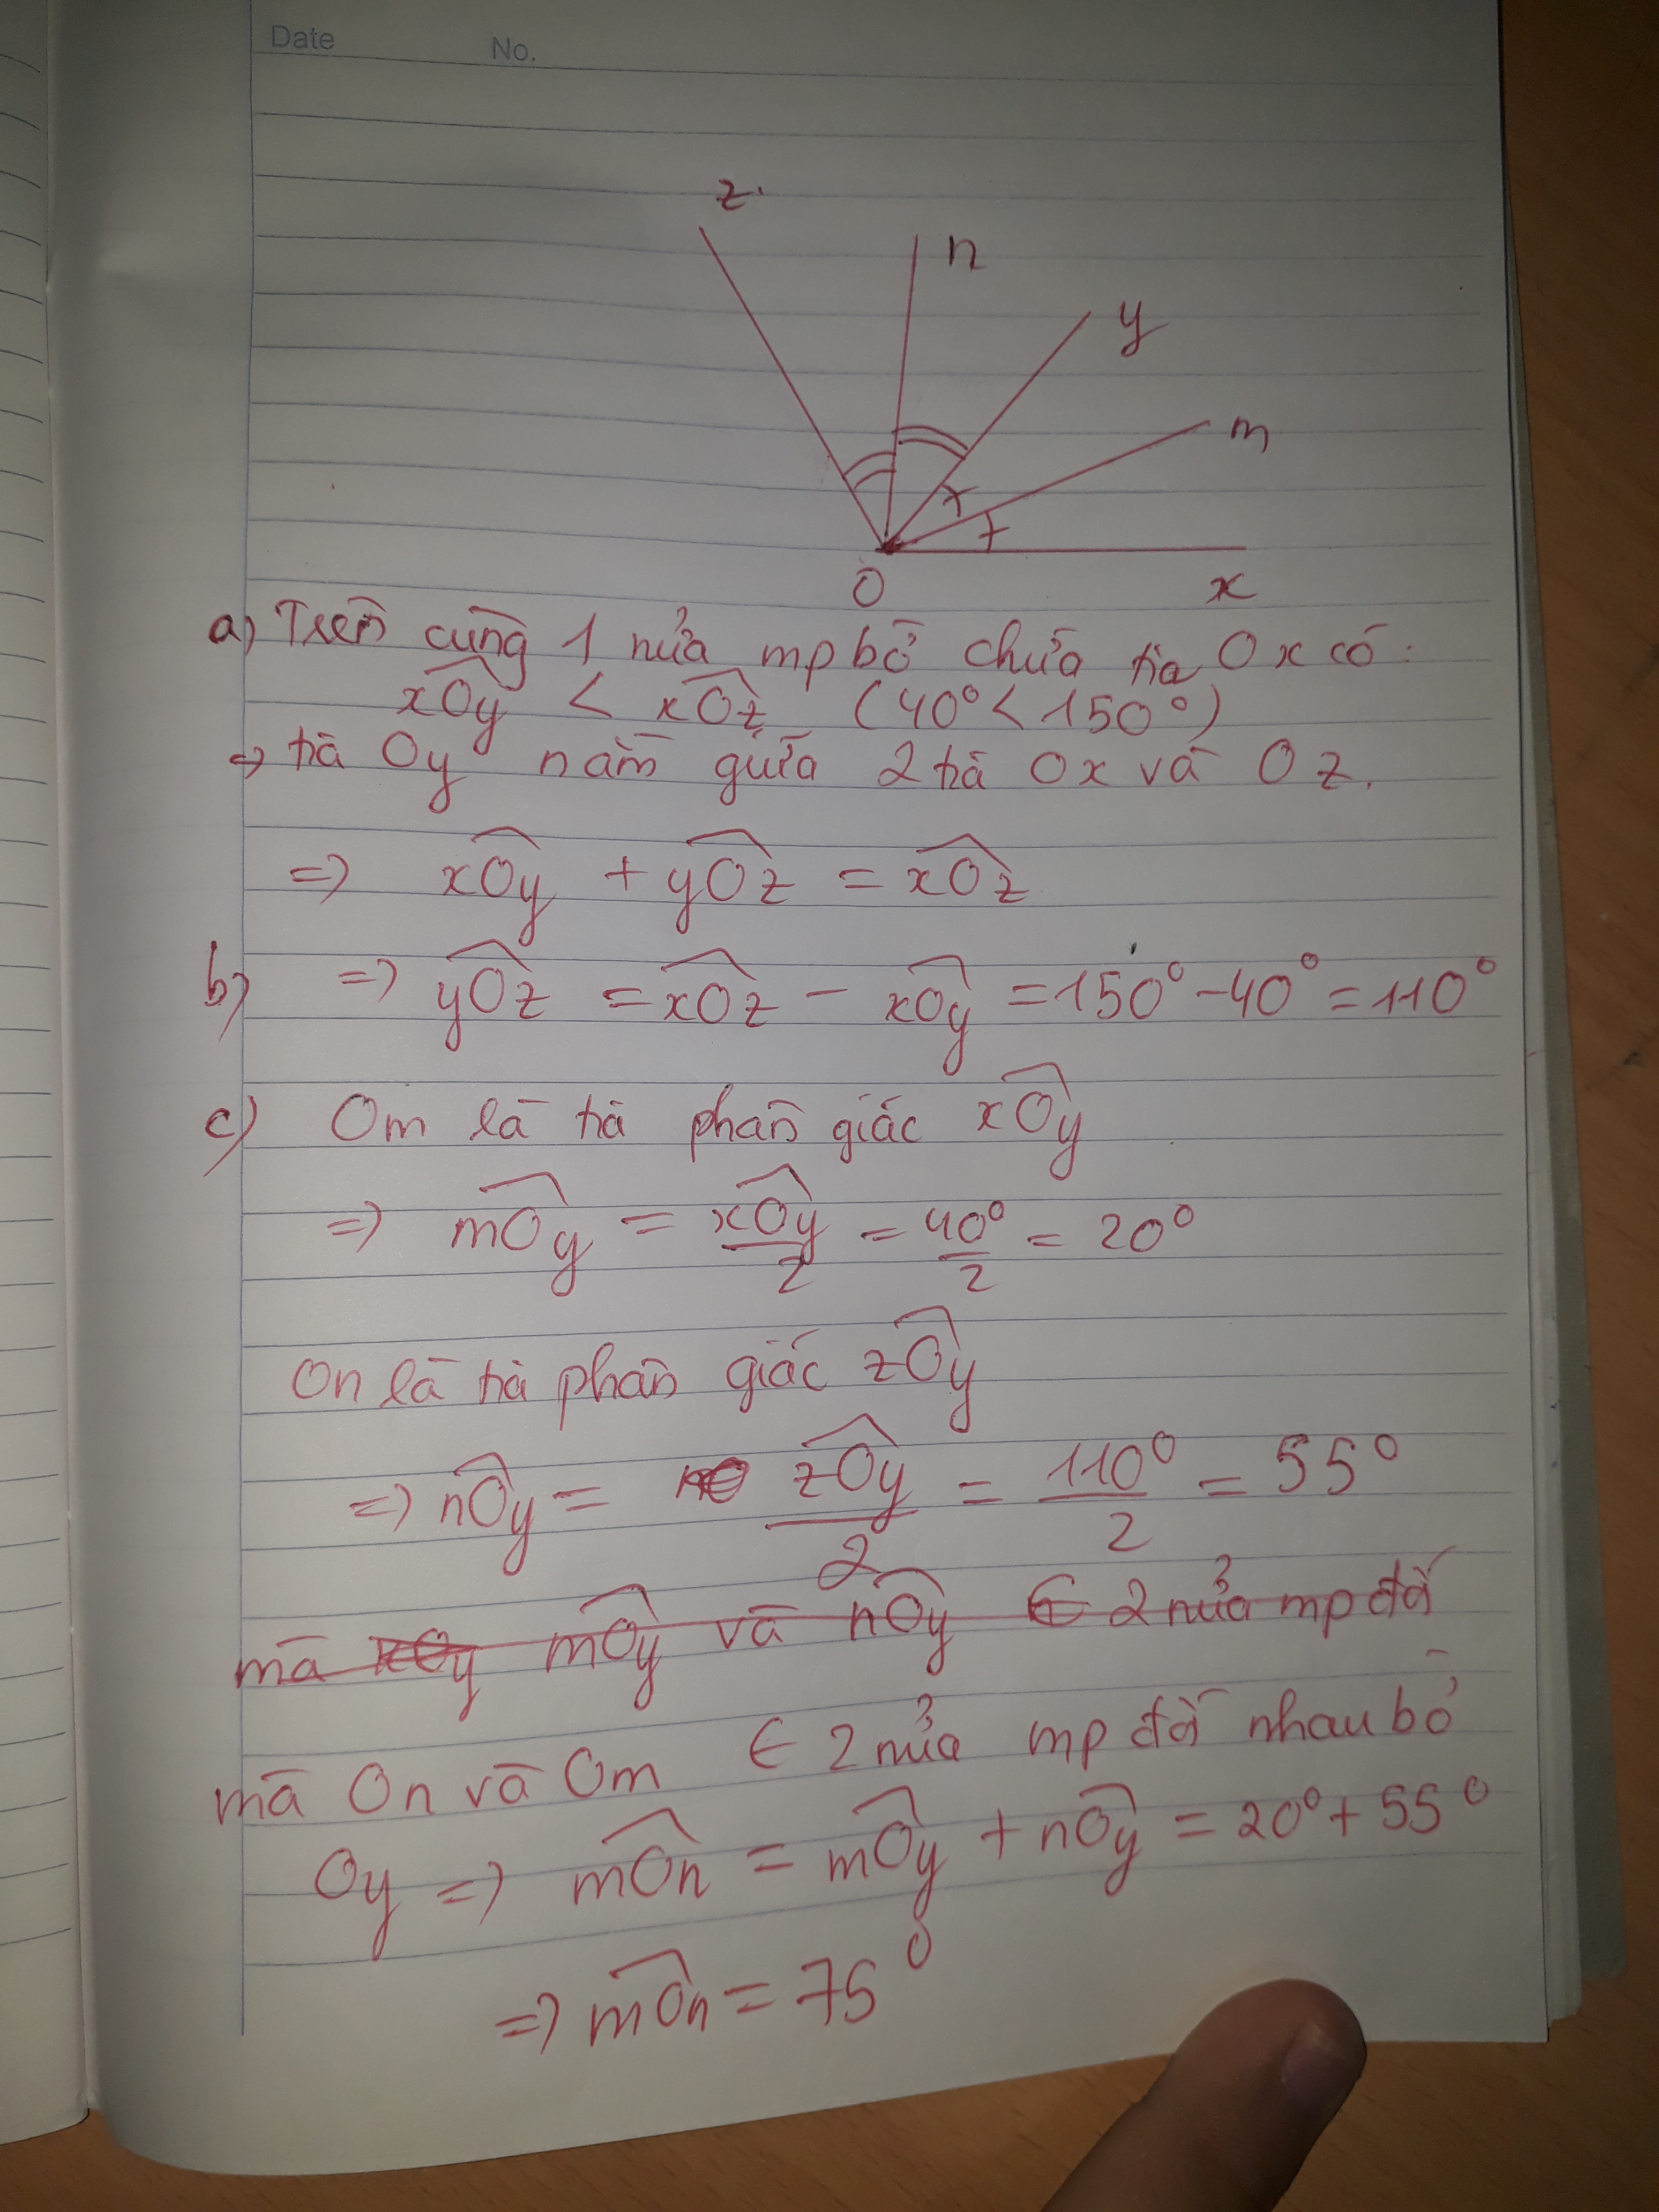 Date No.
z
n
y
m
O x
a) Trên cùng 1 nửa mp bờ chứa tia Ox có:
xOy < xOz (40° < 150°)
=> tia Oy nằm giữa 2 tia Ox và Oz.
=> xOy + yOz = xOz
b) => yOz = xOz - xOy = 150° - 40° = 110°
c) Om là tia phân giác xOy
=> mOy = xOy/2 = 40°/2 = 20°
On là tia phân giác zOy
=> nOy = zOy/2 = 110°/2 = 55°
mà mOy và nOy ∈ 2 nửa mp đối
mà On và Om ∈ 2 nửa mp đối nhau bờ
Oy => mOn = mOy + nOy = 20° + 55°
=> mOn = 75°